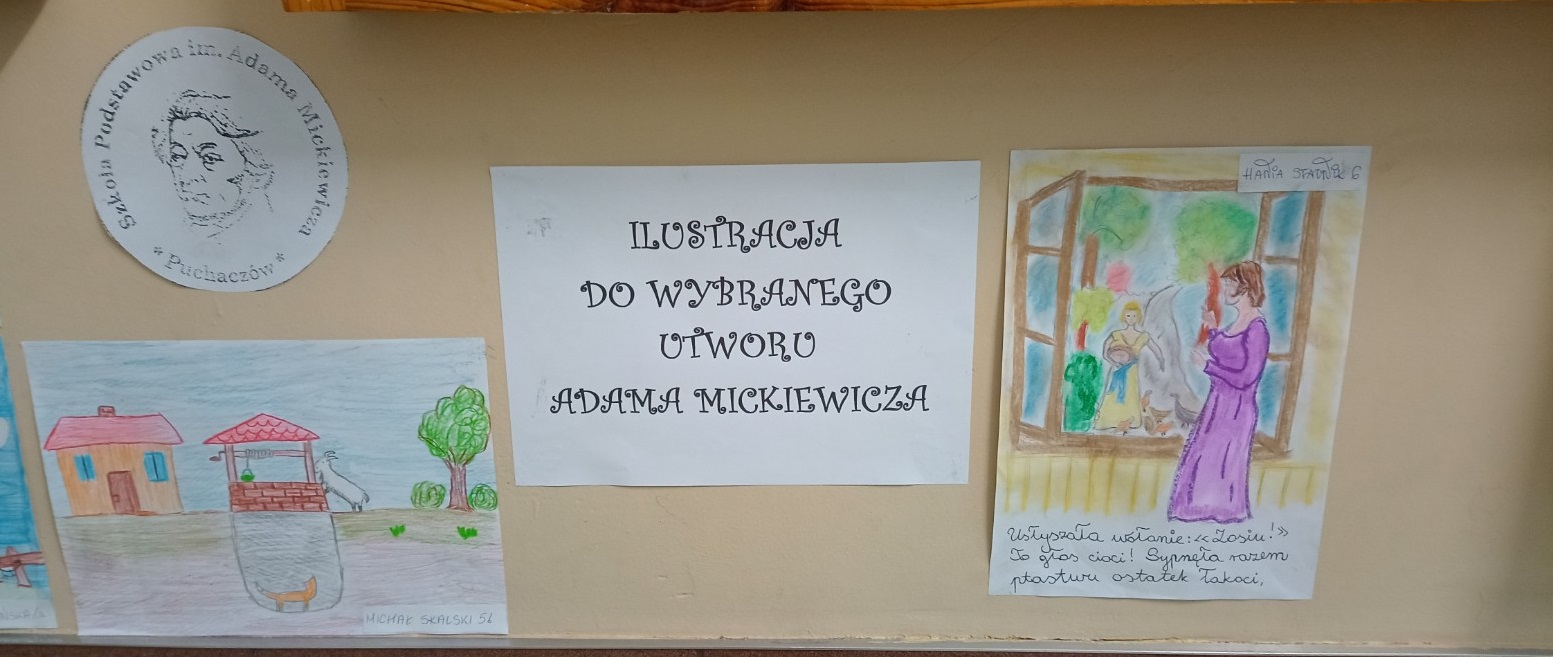 Szkoła Podstawowa im. Adama Mickiewicza
* Puchaczów *
ILUSTRACJA
DO WYBRANEGO
UTWORU
ADAMA MICKIEWICZA
HANIA STADNIK 6
Usłyszała wołanie: «Zosiu!»
To głos cioci! Sypnęła razem
ptastwu ostatek łakoci,
MICHAŁ SKALSKI 5b